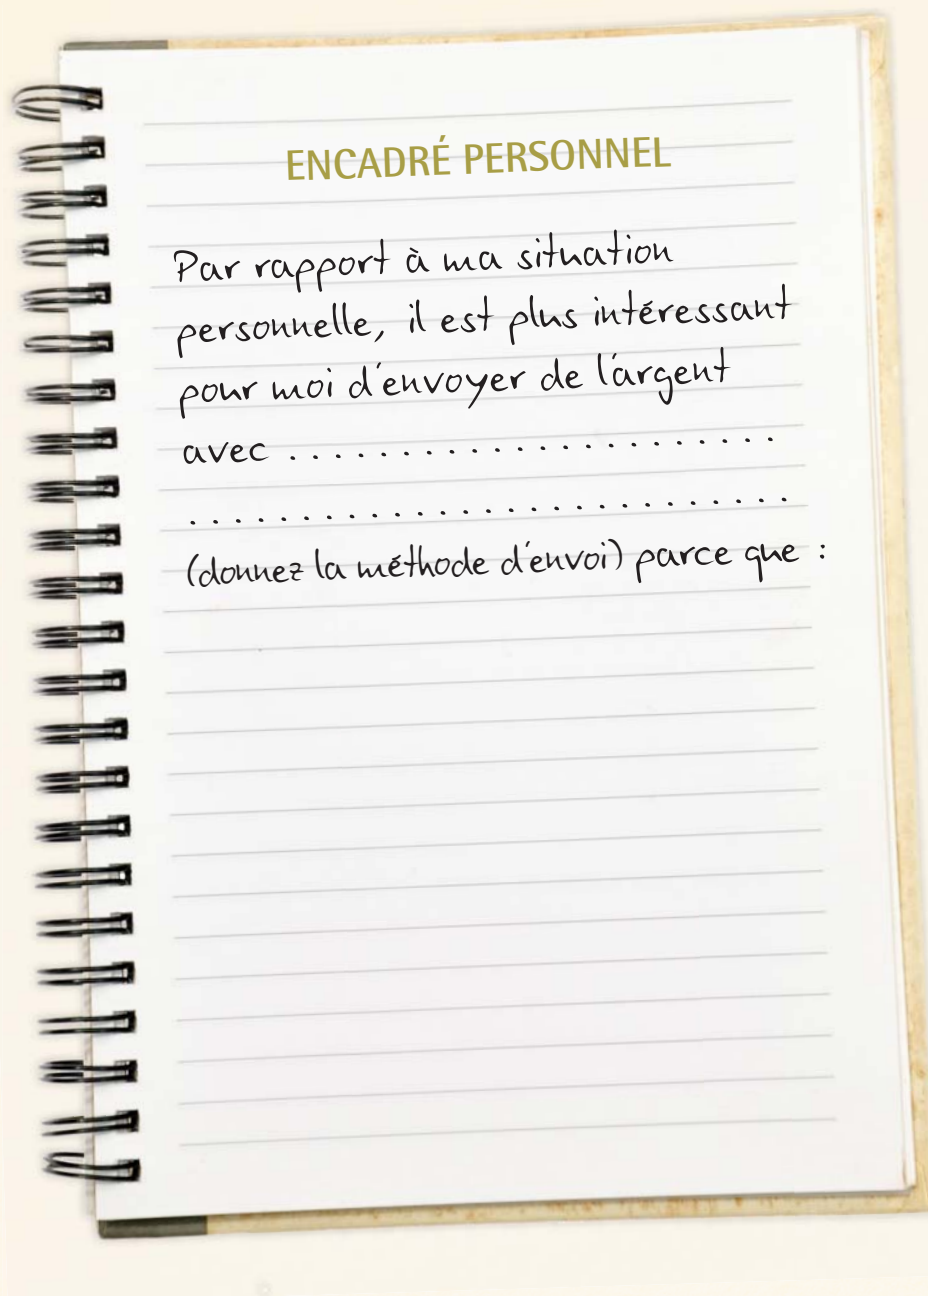 ENCADRÉ PERSONNEL
Par rapport à ma situation
personnelle, il est plus intéressant
pour moi d'envoyer de l'argent
avec . . . . . . . . . . . . . . . . . . . . . .
. . . . . . . . . . . . . . . . . . . . . . . . . . .
(donnez la méthode d'envoi) parce que :